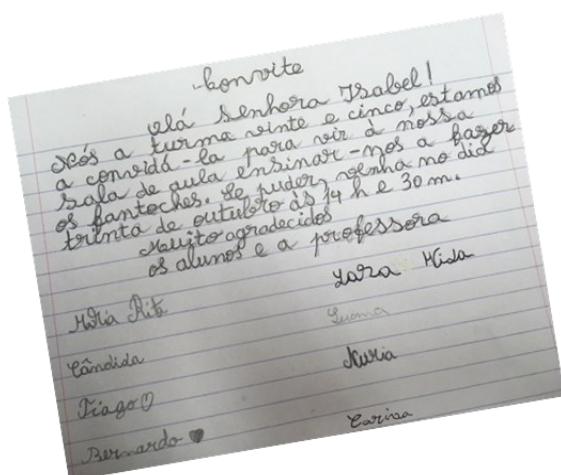 Convite
olá Senhora Isabel!
Nós a turma vinte e cinco, estamos
a convidá-la para vir à nossa
sala de aula ensinar-nos a fazer
os fantoches. Se puder, venha no dia
trinta de outubro às 14 h e 30 m.
Muito agradecidos
os alunos e a professora
Lara
Maria Rita
Cândida
Nuria
Tiago
Bernardo
Carina